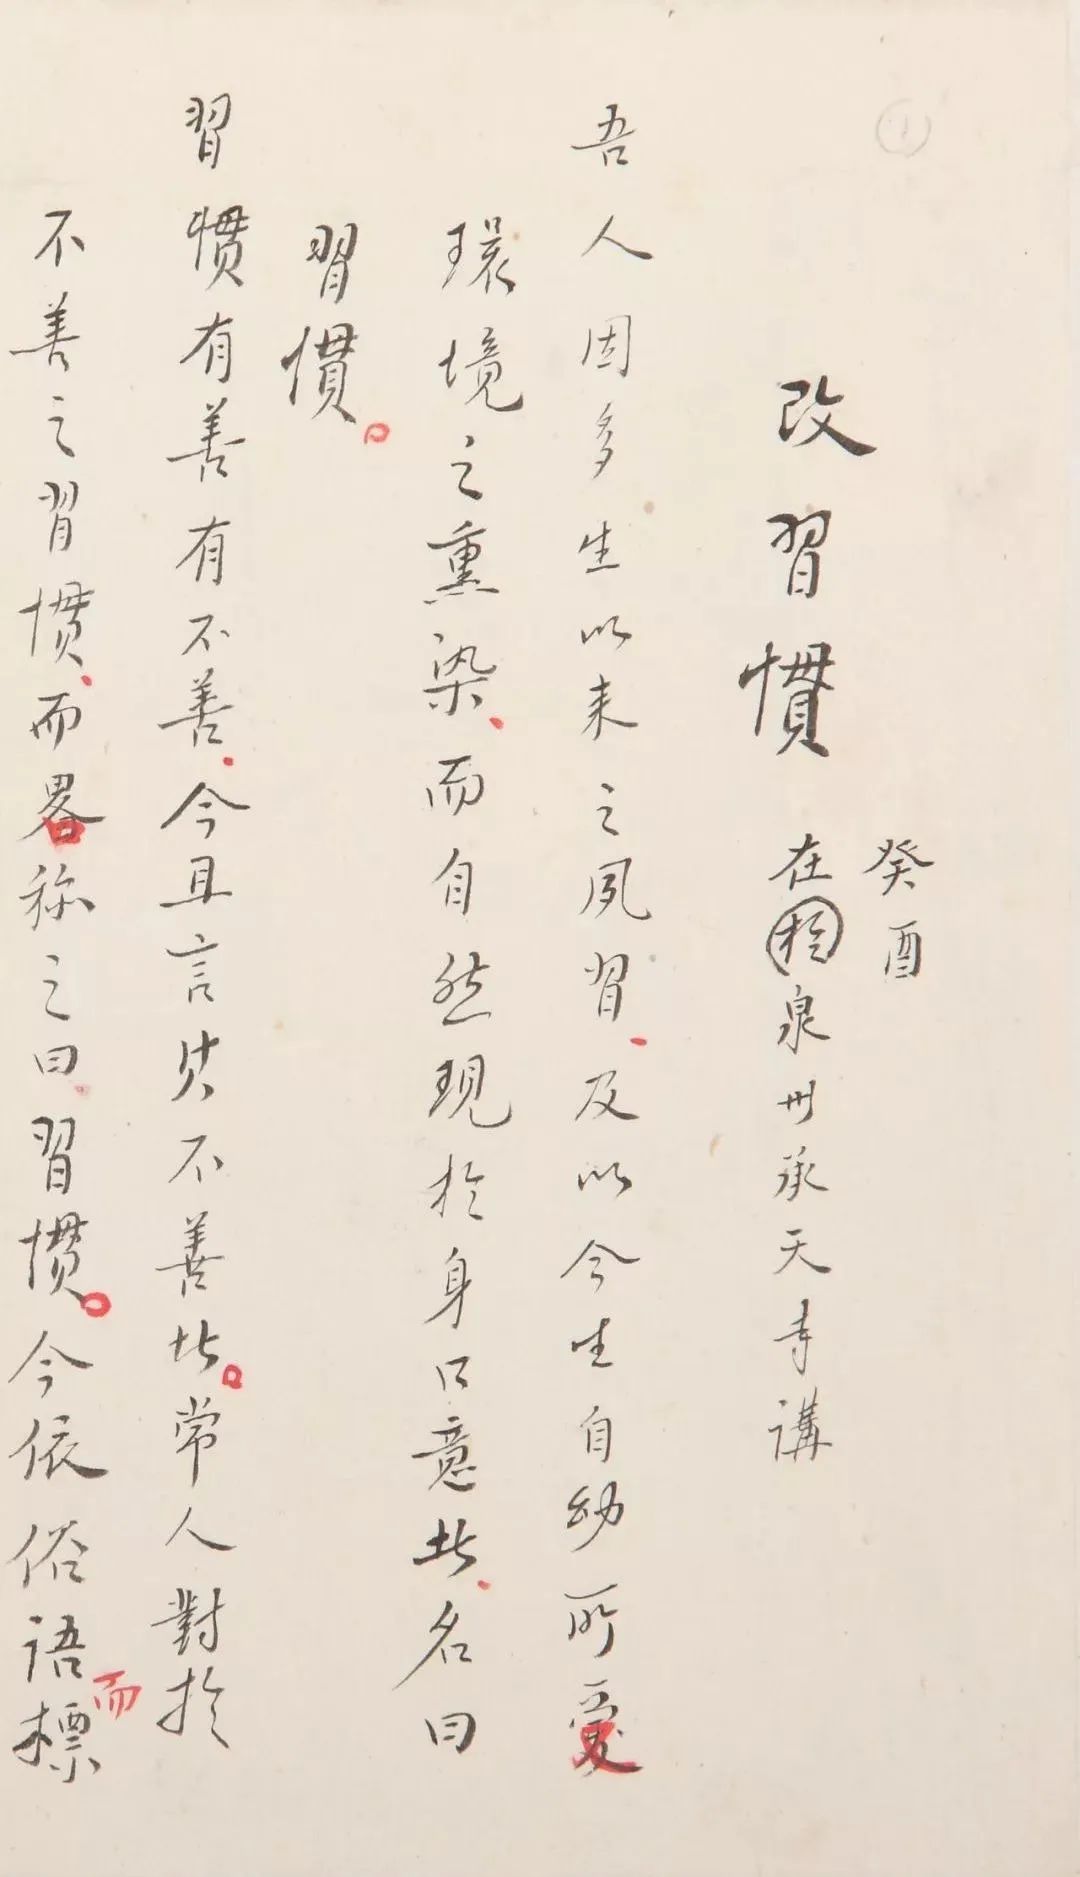 ①
改習慣
癸酉
在於泉州承天寺講
吾人因多生以来之夙習、及以今生自幼所受
環境之熏染、而自然現於身口意者、名曰
習慣。
習慣有善有不善、今且言其不善者。常人對於
不善之習慣、而畧称之曰、習慣。今依俗語而標